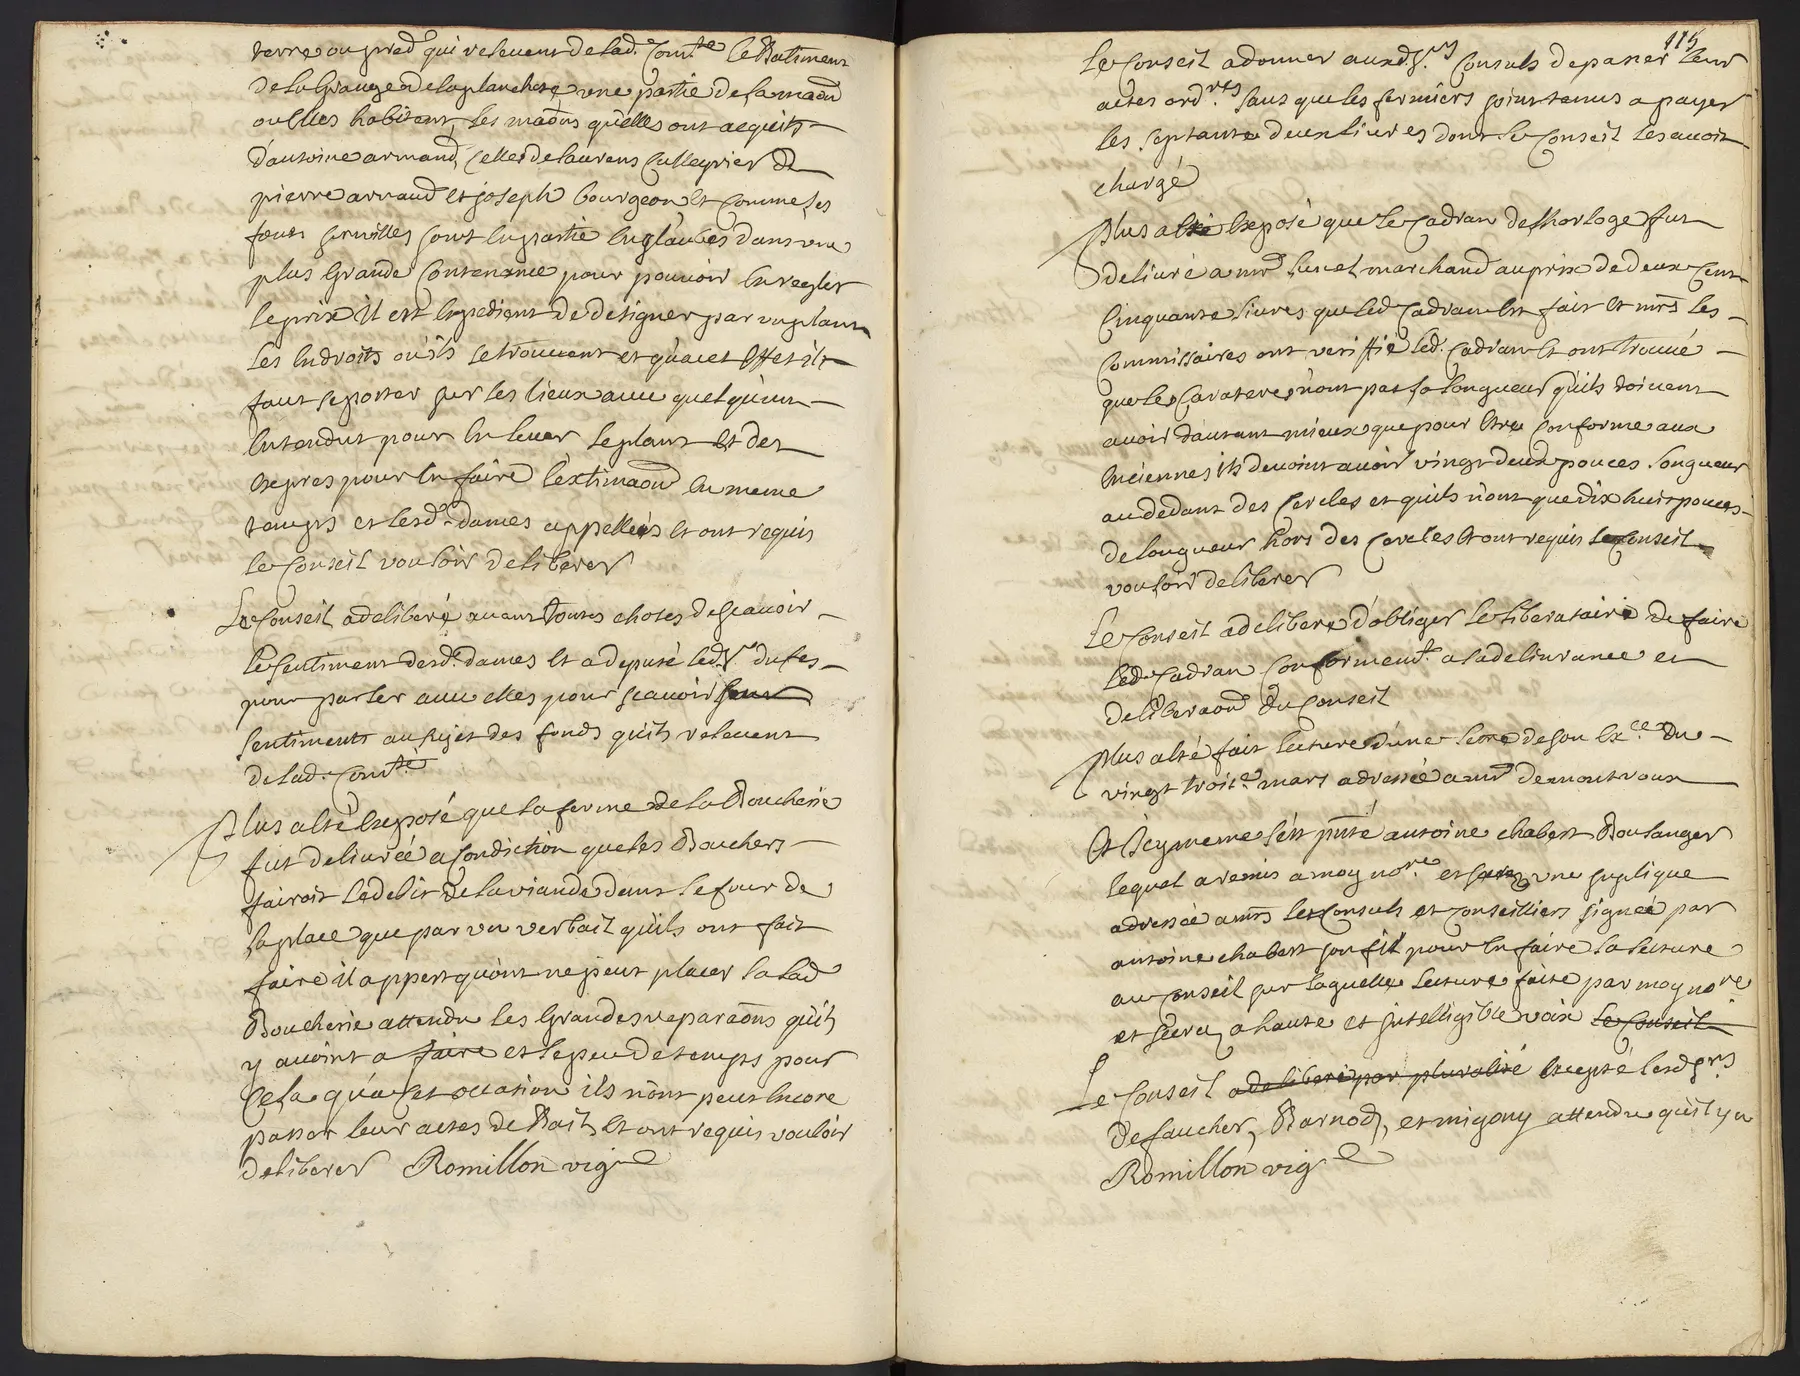 terre ou pred qui relevent de lad. Com.te le Batiment
de la Grange de la planchete une partie de la maõn
ou Elles habitent, les maõns qu'elles ont acquits
d'antoine armand, celles de laurens Culleyrier et
pierre arnaud et joseph bourgeon et comme les
fonds servilles sont en partie englaubés dans une
plus Grande Contenance pour pouvoir en regler
le prix il est expedient de designer par un plant
les endroits où ils se trouvent et qu'a cet effet il
faut se porter sur les lieux avec quelqu'un
entendut pour en lever le plant et des
expres pour en faire l'extimaõn en meme
temps et lesd. dames appellées et ont requis
le Conseil vouloir deliberer
Le Conseil a deliberé avant toutes choses de scavoir
le sentiment desd. dames et a deputé led. Sr. du fes
pour parler avec elles pour scavoir leur
sentiments au sujet des fonds qu'ils relevent
de lad. Com.té
Plus a été exposé que la ferme de la Boucherie
fut delivrée a condiction que les Bouchers
fairoit le debit de la viande dans le four de
la place que par un verbail qu'ils ont fait
faire il appert qu'ont ne peut placer la lad
Boucherie attendu les Grandes reparaõns qu'il
y avoint a faire et le peu de temps pour
cela qu'a cet occasion ils n'ont peut encore
passer leur actes de Bail, et ont requis vouloir
deliberer Romillon vig
115
Le Conseil a donner auxd. Srs Consuls de passer leur
actes ord.res sans que les fermiers soint tenus a payer
les septante deux livres dont le Conseil les avoit
chargé
Plus a été exposé que le Cadran de l'horloge fut
delivré a mr. Luset marchand au prix de deux cent
Cinquante livres que led. Cadran est fait et mrs les
Commissaires ont veriffié led. Cadran et ont trouvé
que les Carateres n'ont pas la longueur qu'ils doivent
avoir d'autant mieux que pour etre conforme aux
enciennes ils devoint avoir vingt deux pouces longueur
au dedant des cercles et qu'ils n'ont que dix huit pouces
de longueur hors des cercles et ont requis le Conseil
vouloir deliberer
Le Conseil a deliberé d'obliger le liberataire de faire
led. Cadran conforment. a la delivrance et
deliberaõn du Conseil
Plus a été fait lecture d'une letre de son Ex.ce du
vingt trois.e mars adressée a mr demontroux
Et icy meme s'est pnté antoine chabert Boulanger
lequel a remis a moy no.re et une suplique
adressée a mrs les Consuls et Conseilliers signée par
antoine chabert son fil pour en faire la lecture
au Conseil sur laquelle lecture faite par moy no.re
et a haute et intelligible voix le Conseil
Le Conseil a deliberé par pluralité excepté lesd. Srs
defaucher, Barnod, et migony attendu qu'il y a
Romillon vig